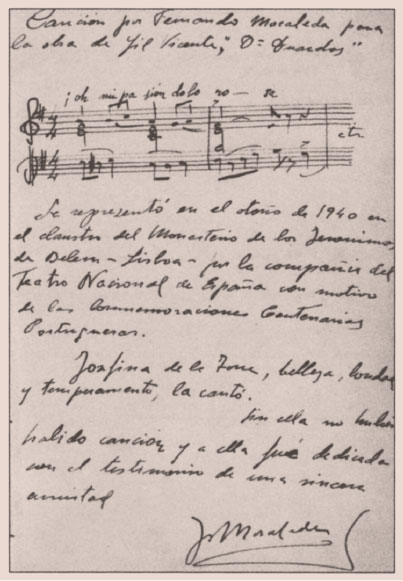 Canción por Fernando Moraleda para
la obra de Gil Vicente, "Dn Duardos"
¡oh mi pasión dolo ro — sa
etc
Se representó en el otoño de 1940 en
el claustro del Monasterio de los Jeronimos,
de Belem — Lisboa — por la compañia del
Teatro Nacional de España con motivo
de las Conmemoraciones Centenarias
Portuguesas.
Josefina de la Torre, belleza, bondad
y temperamento, la cantó.
Sin ella no hubiera
habido canción y a ella fué dedicada
con el testimonio de una sincera
amistad
F Moraleda